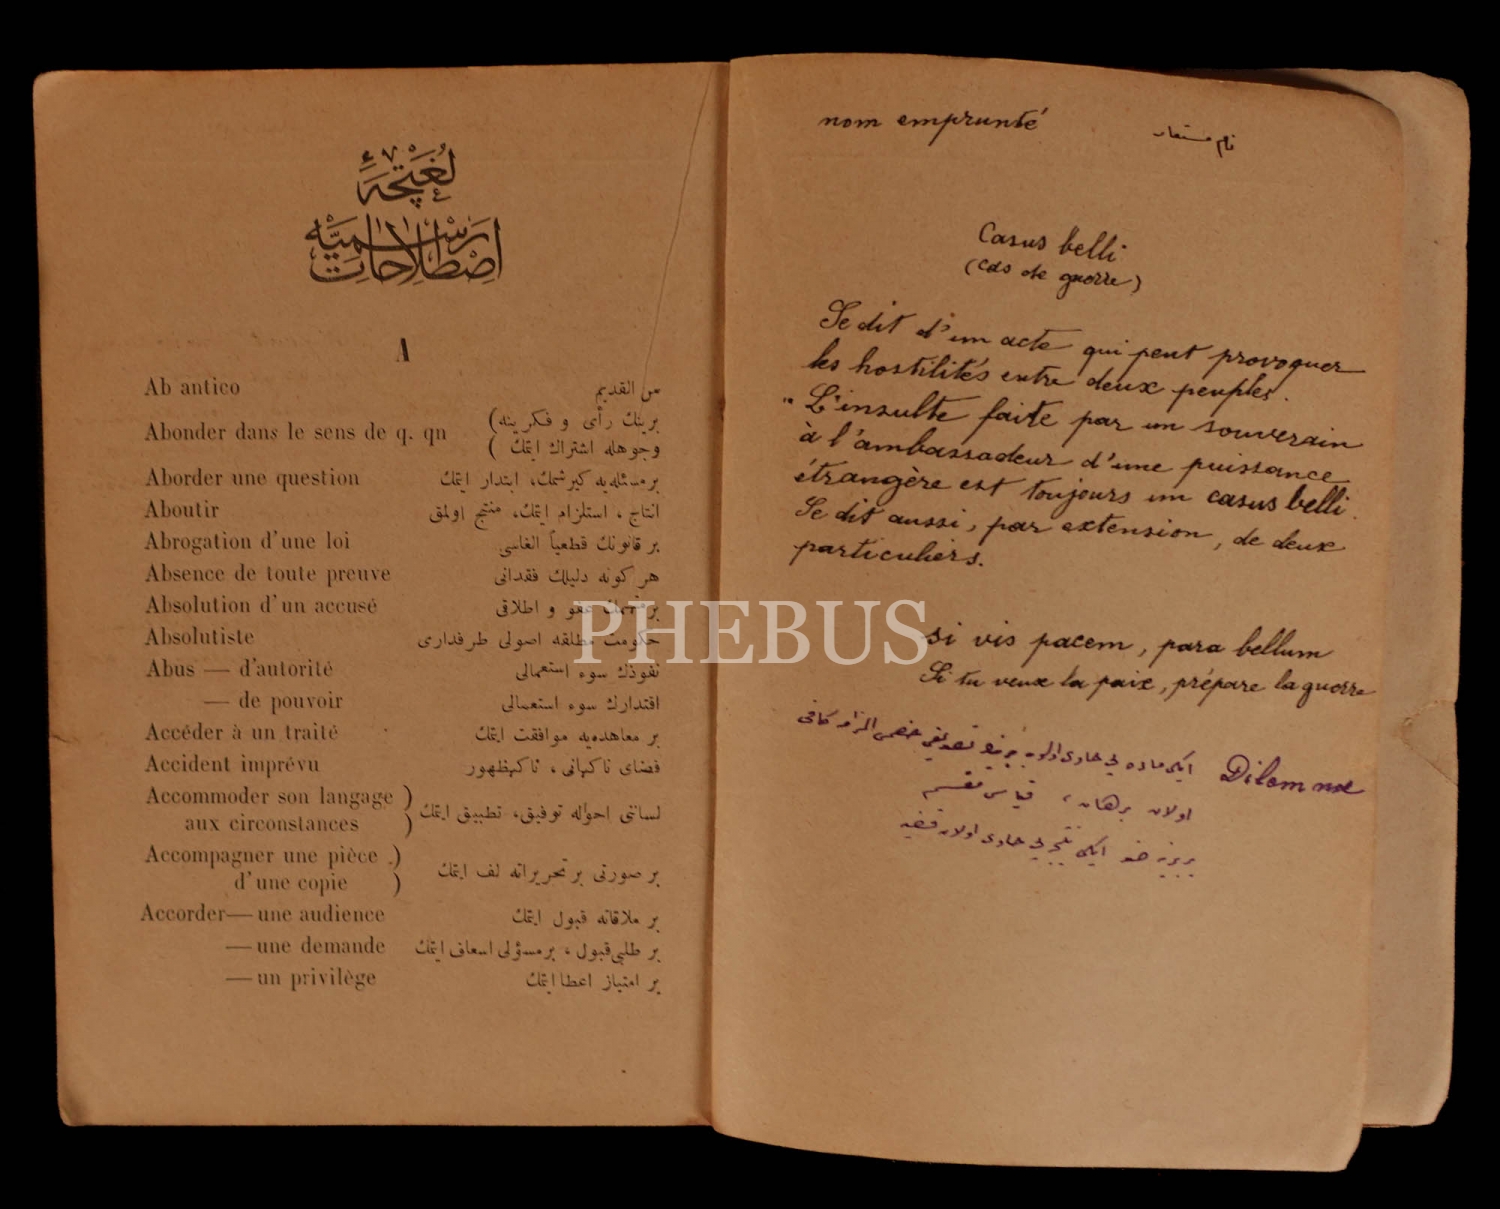 لغتچهٔ
اصطلاحات رسمیه
A
Ab antico من القدیم
Abonder dans le sens de q. qn برینك رأی و فكرینه
وجوهله اشتراك ایتمك
Aborder une question بر مسئله‌یه كیرشمك، ابتدار ایتمك
Aboutir انتاج ، استلزام ایتمك، منتج اولمق
Abrogation d'une loi بر قانونك قطعیاً الغاسی
Absence de toute preuve هر كونه دلیلك فقدانی
Absolution d'un accusé بر متهمك عفو و اطلاقی
Absolutiste حكومت مطلقه اصولی طرفداری
Abus — d'autorité نفوذك سوء استعمالی
— de pouvoir اقتدارك سوء استعمالی
Accéder à un traité بر معاهده‌یه موافقت ایتمك
Accident imprévu قضای ناكهانی ، ناكهظهور
Accommoder son langage
aux circonstances لساننی احواله توفیق، تطبیق ایتمك
Accompagner une pièce
d'une copie بر صورتی بر تحریراته لف ایتمك
Accorder — une audience بر ملاقاته قبول ایتمك
— une demande بر طلبی قبول ، بر مسؤلی اسعاف ایتمك
— un privilège بر امتیاز اعطا ایتمك
nom emprunté نام مستعار
Casus belli
(cas de guerre)
Se dit d'un acte qui peut provoquer
les hostilités entre deux peuples.
" L'insulte faite par un souverain
à l'ambassadeur d'une puissance
étrangère est toujours un casus belli.
Se dit aussi, par extension, de deux
particuliers.
si vis pacem, para bellum
Si tu veux la paix, prépare la guerre
Dilemme ایكی ماده یی حاوی اولوب
اولان برهان ، قیاس مقسم
بربرینه ضد ایكی نتیجه یی حاوی اولان قضیه
PHEBUS